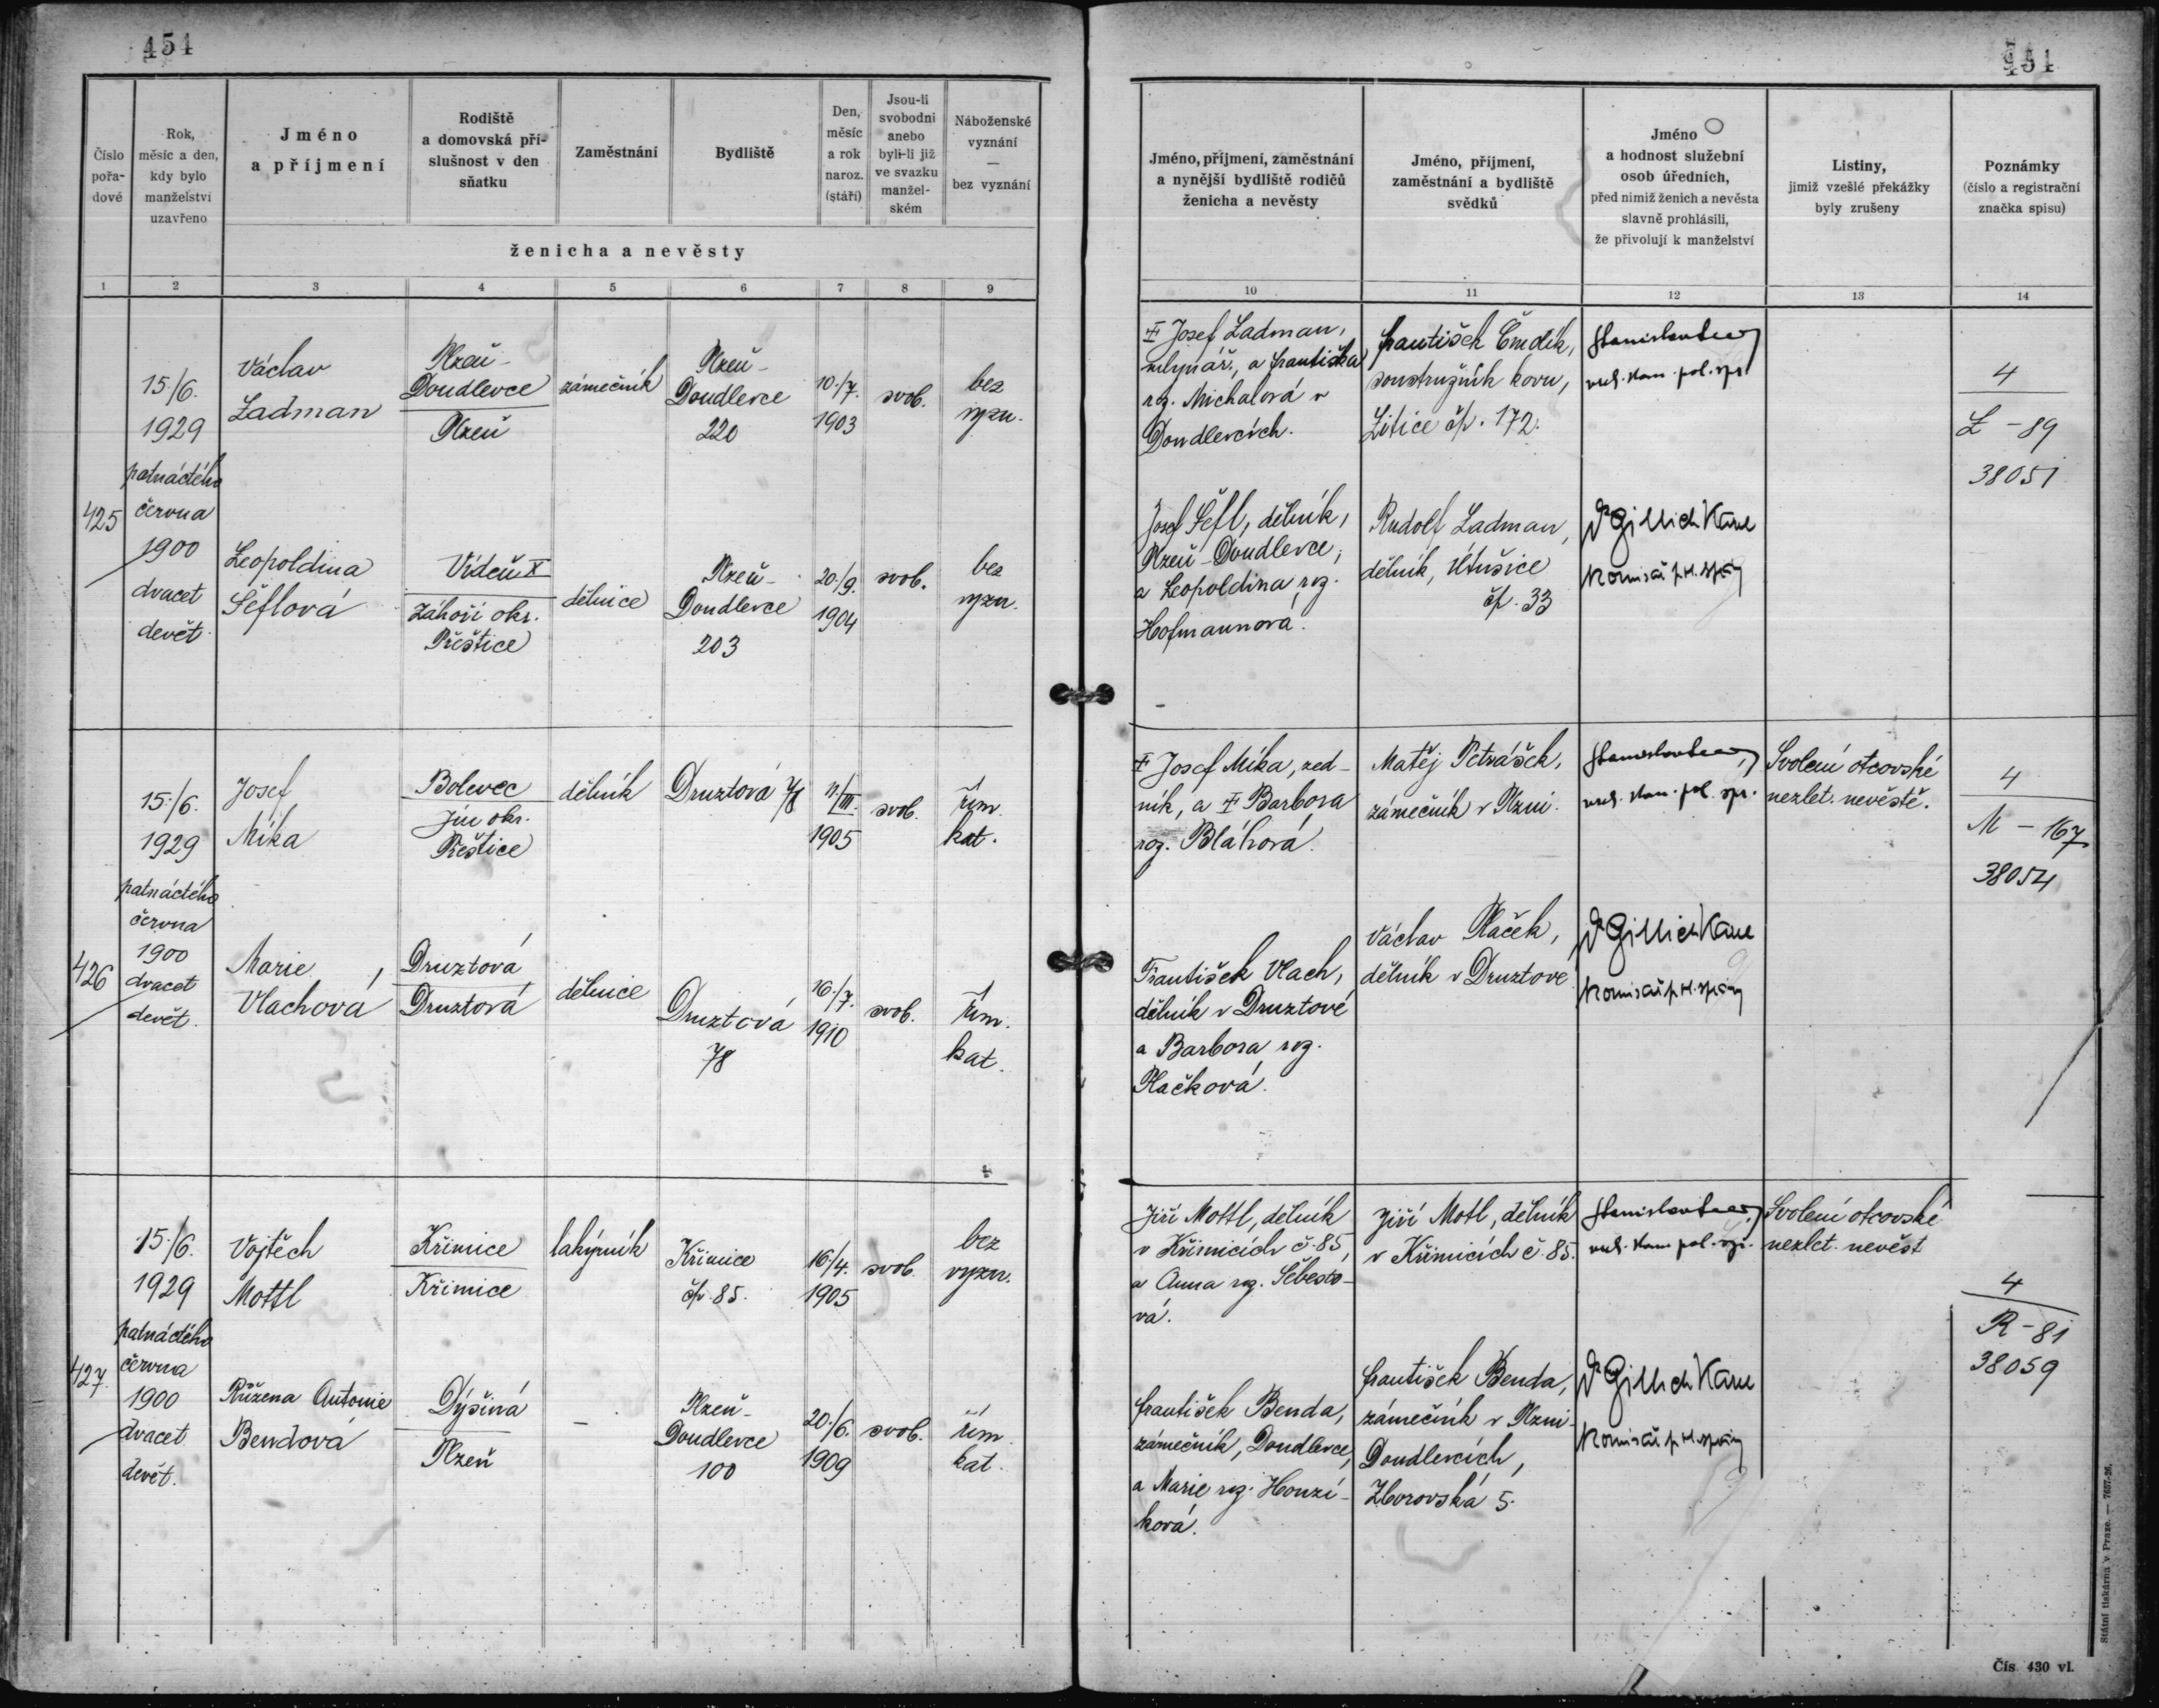 451
Číslo pořa- dové
Rok, měsíc a den, kdy bylo manželství uzavřeno
Jméno a příjmení
Rodiště a domovská pří- slušnost v den sňatku
Zaměstnání
Bydliště
Den, měsíc a rok naroz. (stáří)
Jsou-li svobodni anebo byli-li již ve svazku manžel- ském
Náboženské vyznání — bez vyznání
ženicha a nevěsty
1 2 3 4 5 6 7 8 9
425
15./6.
1929
patnáctého
června
1900
dvacet
devět.
Václav
Ladman
Plzeň-
Doudlevce
Plzeň
zámečník
Plzeň-
Doudlevce
220
10./7.
1903
svob.
bez
vyzn.
Leopoldina
Šeflová
Vídeň X
Záhoří okr.
Přeštice
dělnice
Plzeň-
Doudlevce
203
20./9.
1904
svob.
bez
vyzn.
426
15./6.
1929
patnáctého
června
1900
dvacet
devět.
Josef
Míka
Bolevec
Jíno okr.
Přeštice
dělník
Druztová 78
11./III.
1905
svob.
řím.
kat.
Marie
Vlachová
Druztová
Druztová
dělnice
Druztová
78
16./7.
1910
svob.
řím.
kat.
427.
15./6.
1929
patnáctého
června
1900
dvacet
devět.
Vojtěch
Mottl
Křimice
Křimice
lakýrník
Křimice
čp. 85.
16./4.
1905
svob.
bez
vyzn.
Růžena Antonie
Bendová
Dýšiná
Plzeň
–
Plzeň-
Doudlevce
100
20./6.
1909
svob.
řím.
kat.
451
Jméno, příjmení, zaměstnání a nynější bydliště rodičů ženicha a nevěsty
Jméno, příjmení, zaměstnání a bydliště svědků
Jméno a hodnost služební osob úředních, před nimiž ženich a nevěsta slavně prohlásili, že přivolují k manželství
Listiny, jimiž vzešlé překážky byly zrušeny
Poznámky (číslo a registrační značka spisu)
10 11 12 13 14
‡ Josef Ladman,
mlynář, a Františka
roz. Michalová v
Doudlevcích.
František Čmdík,
soustružník kovu,
Litice čp. 172.
vrch. kom. pol. spr.
4
L – 89
38051
Josef Šefl, dělník,
Plzeň-Doudlevce,
a Leopoldina roz.
Hofmannová.
Rudolf Ladman,
dělník, Útušice
čp. 33
Dr Gillich Karel
komisař pol. správy
‡ Josef Míka, zed-
ník, a ‡ Barbora
roz. Bláhová.
Matěj Petrášek,
zámečník v Plzni.
vrch. kom. pol. spr.
Svolení otcovské
nezlet. nevěstě.
4
M – 167
38054
František Vlach,
dělník v Druztové
a Barbora roz.
Plačková.
Václav Plaček,
dělník v Druztové
Dr Gillich Karel
komisař pol. správy
Jiří Mottl, dělník
v Křimicích č. 85,
a Anna roz. Šebesto-
vá.
Jiří Motl, dělník
v Křimicích č. 85.
vrch. kom. pol. spr.
Svolení otcovské
nezlet. nevěst
4
R – 81
38059
František Benda,
zámečník, Doudlevce,
a Marie roz. Honzí-
ková.
František Benda,
zámečník v Plzni-
Doudlevcích,
Zborovská 5.
Dr Gillich Karel
komisař pol. správy
Státní tiskárna v Praze. — 7657-26.
Čís. 430 vl.